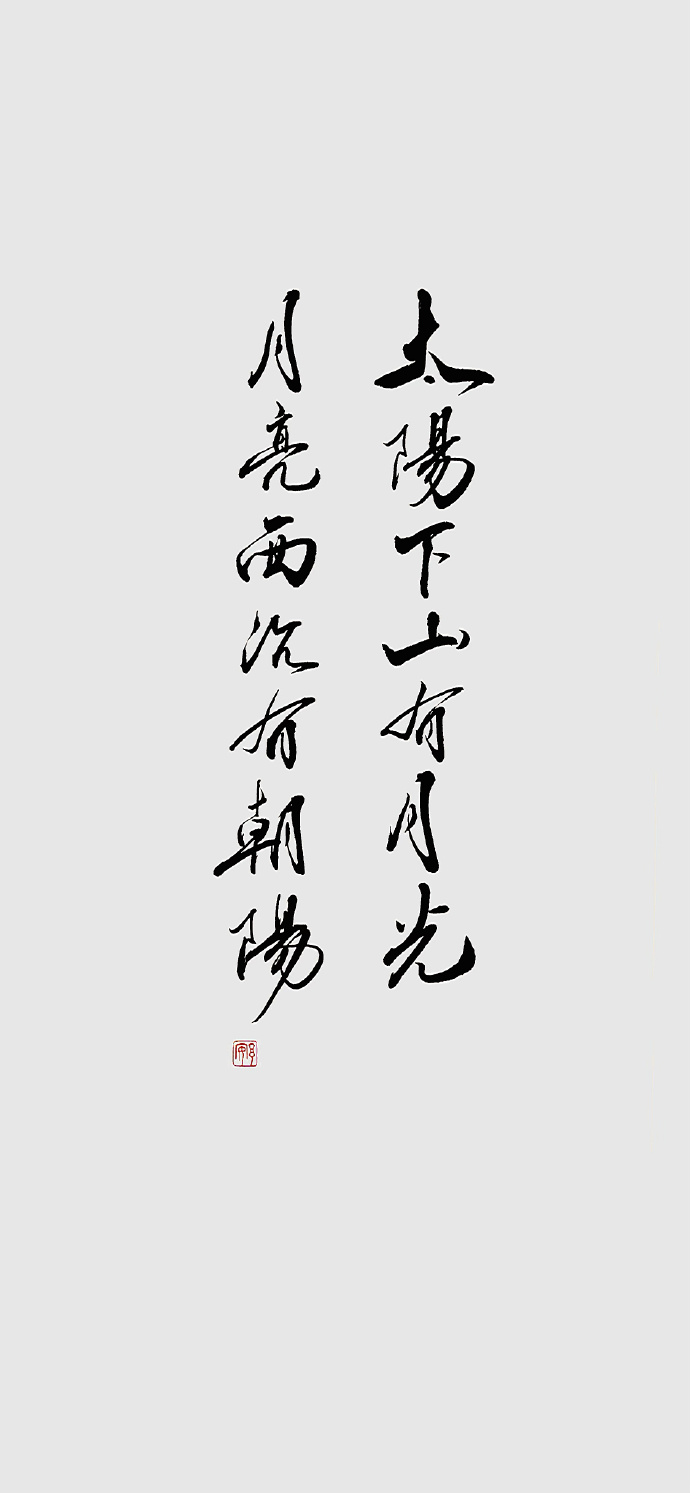 太陽下山有月光
月亮西沉有朝陽